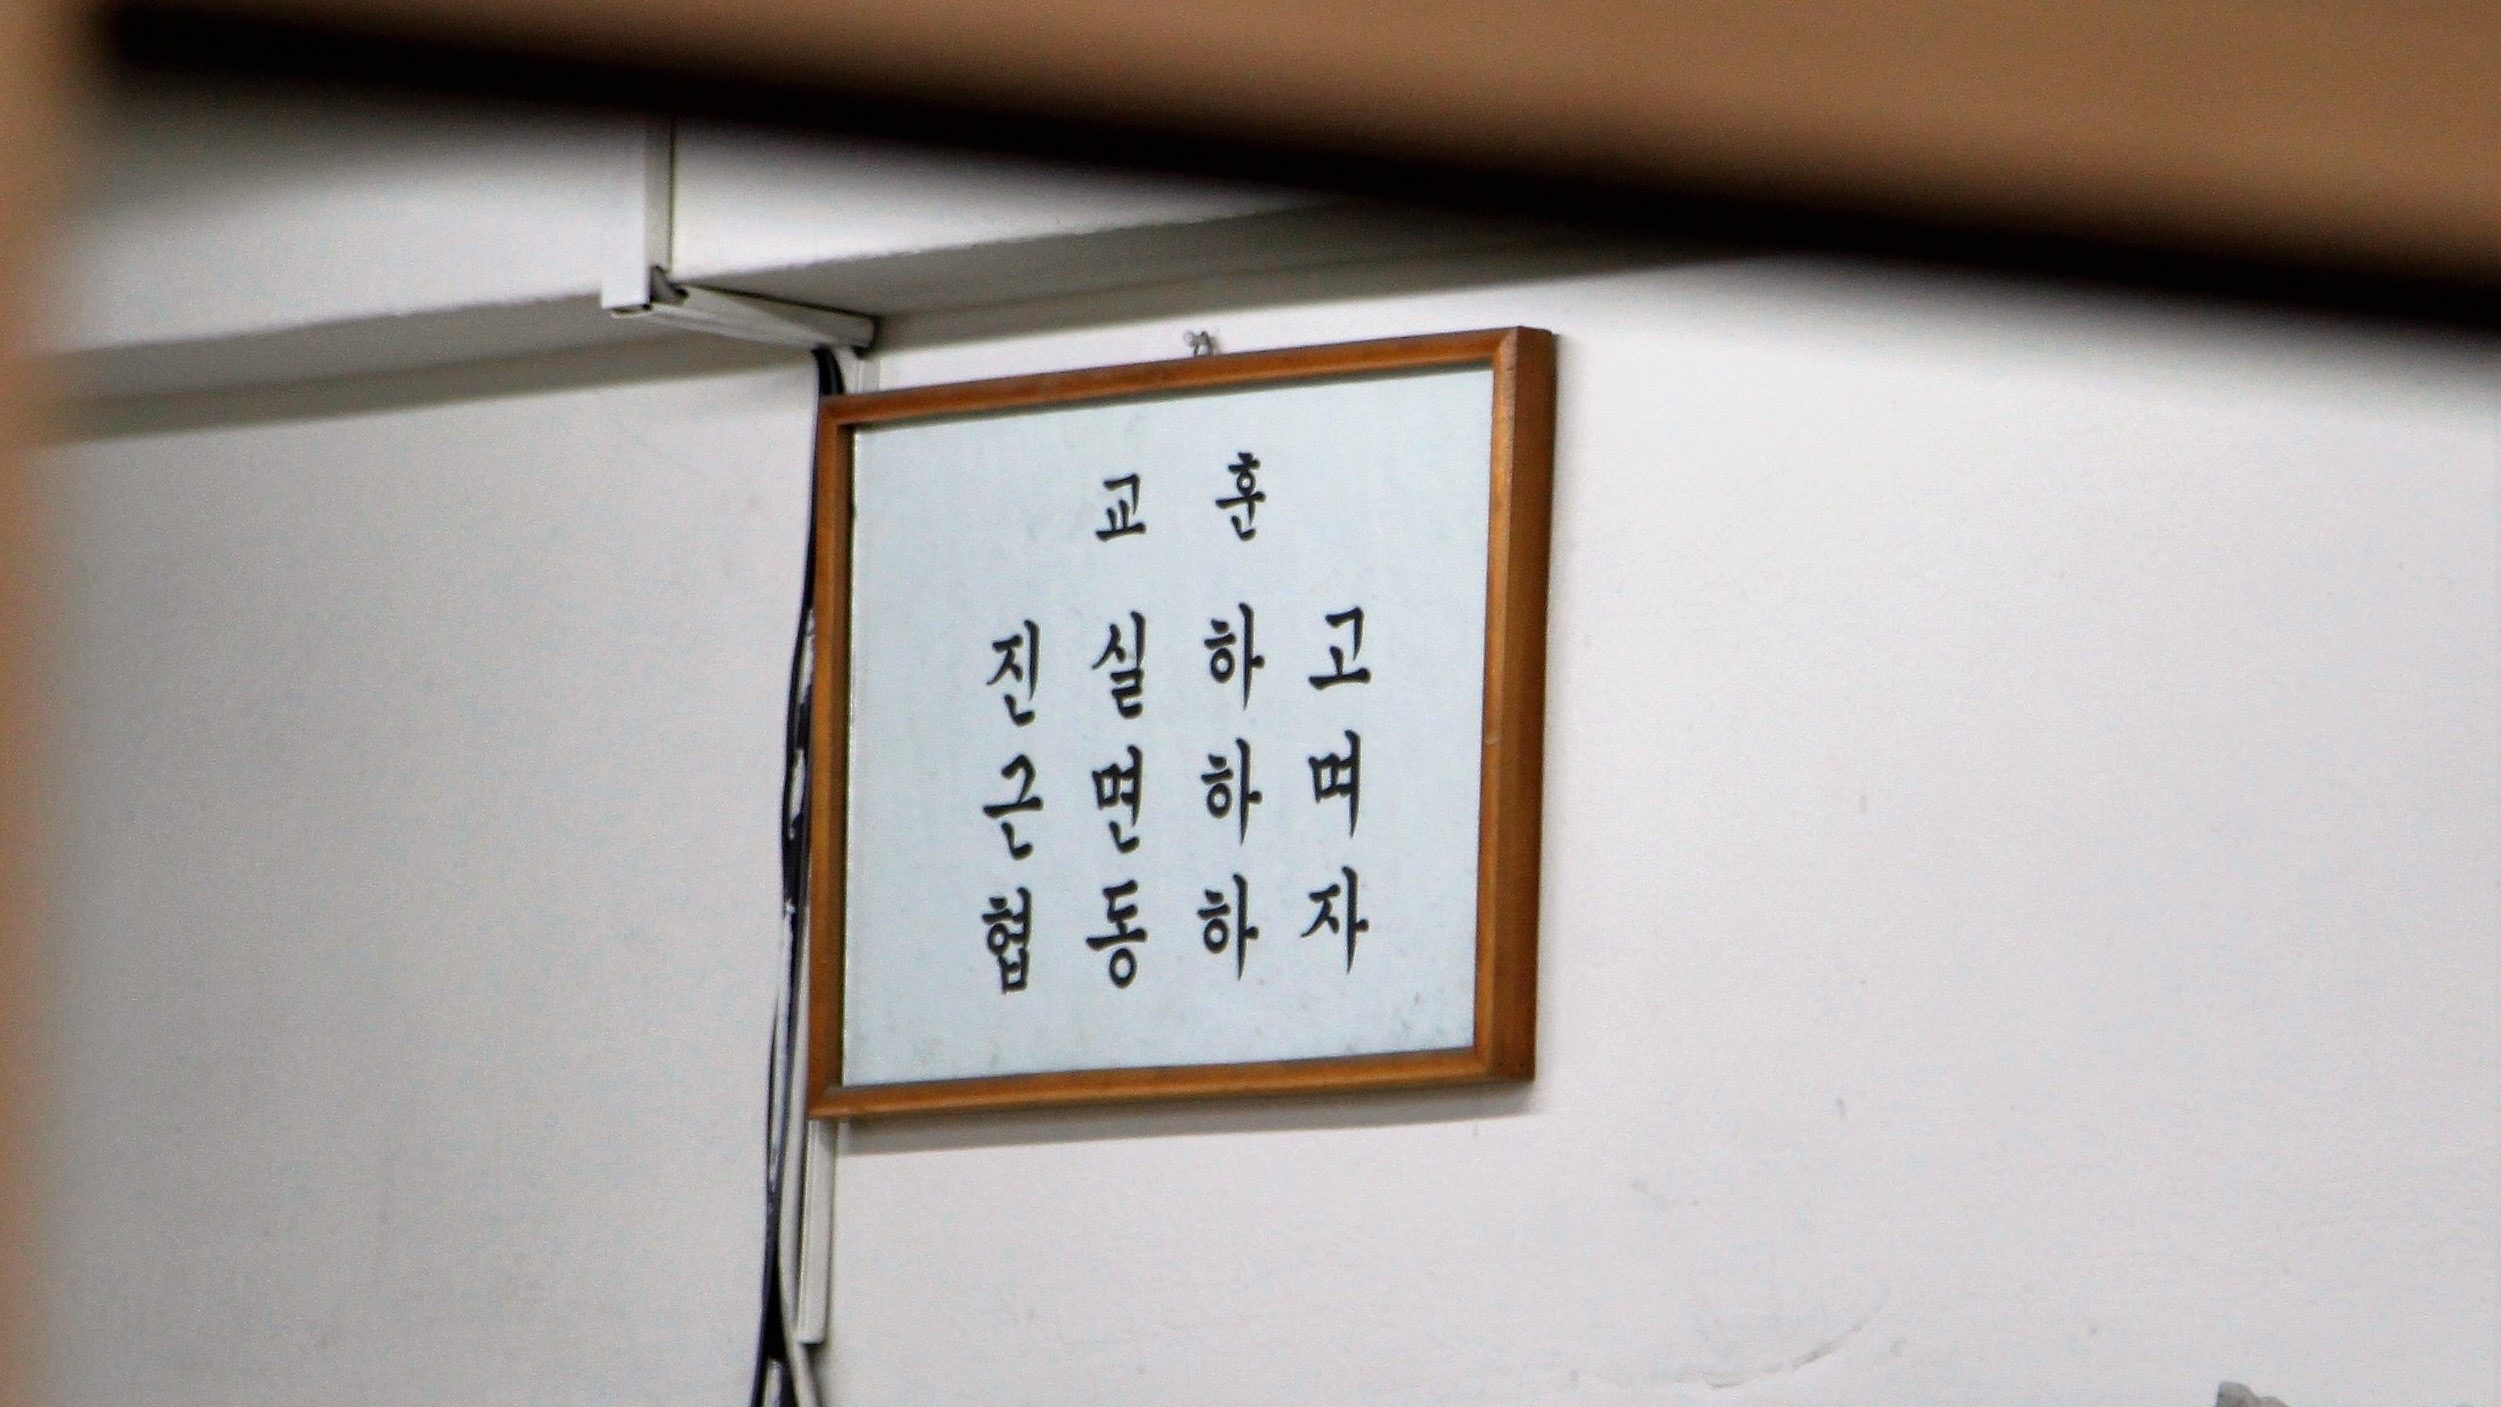 교 훈
진 실 하 고
근 면 하 며
협 동 하 자